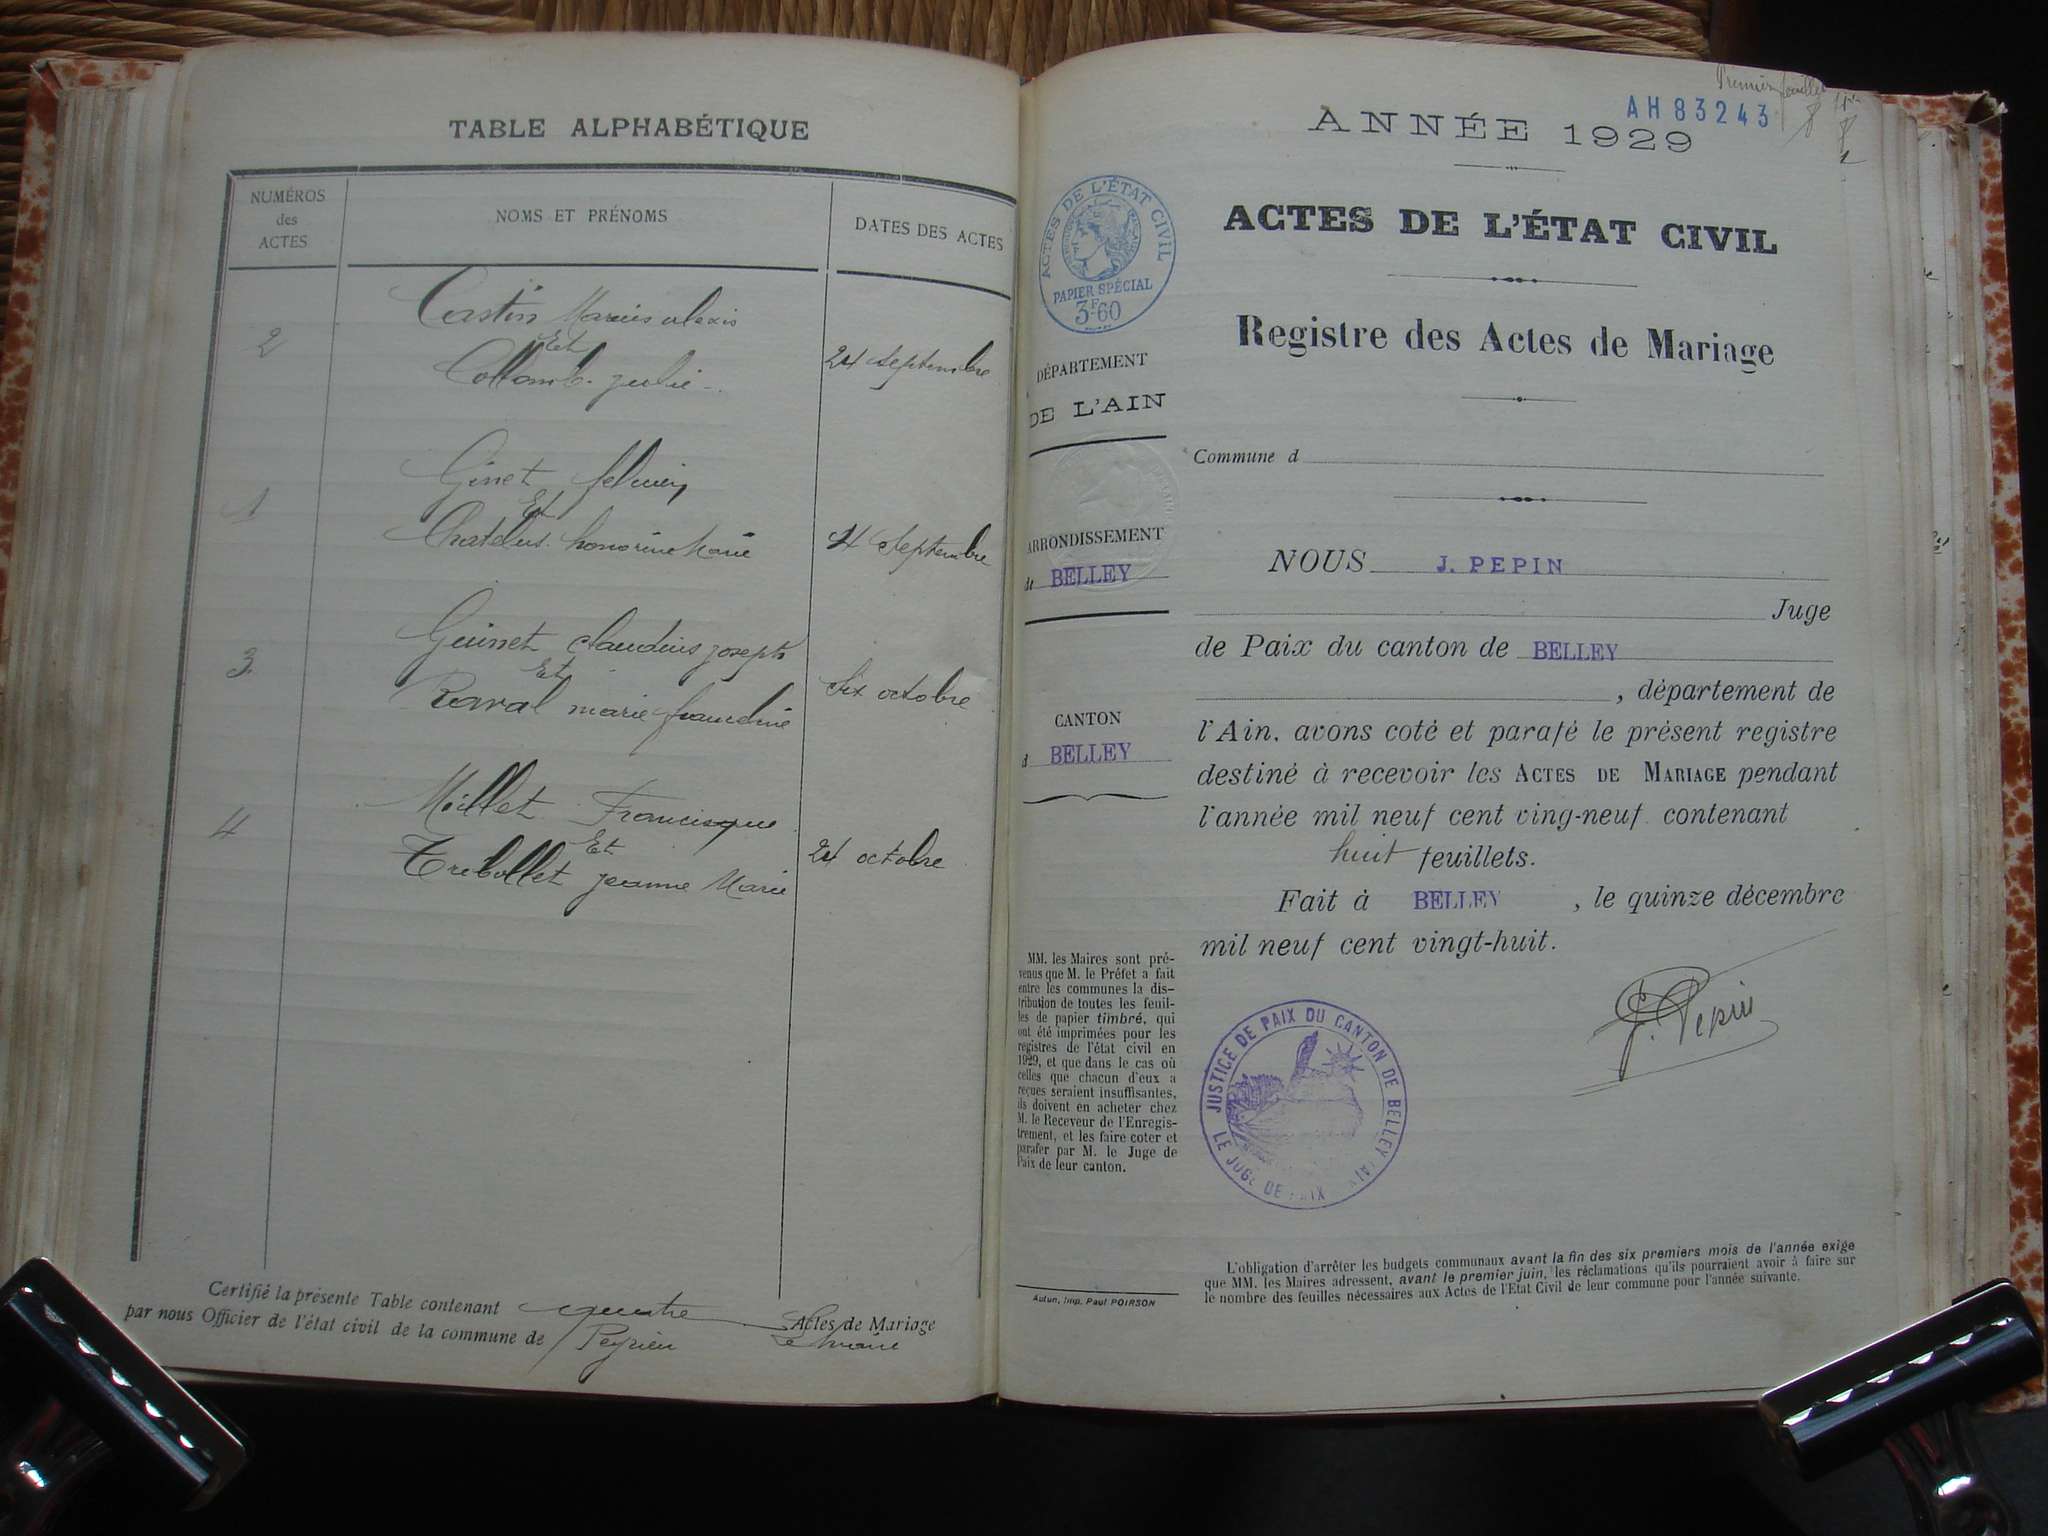 TABLE ALPHABÉTIQUE
NUMÉROS
des
ACTES
NOMS ET PRÉNOMS
DATES DES ACTES
Castin Marius alexis
2
Et
24 Septembre
Collomb. julie
Ginet
1
Et
Chatelus. honorine Marie
Septembre
Guinet claudius joseph
3
Et
Six octobre
Raval marie claudine
Millet Francisque
4
Et
24 octobre
Trebollet jeanne Marie
Certifié la présente Table contenant quatre Actes de Mariage
par nous Officier de l'état civil de la commune de Peyrieu Le Maire
Premier feuillet
AH 83243
ANNÉE 1929
ACTES DE L'ÉTAT CIVIL
PAPIER SPÉCIAL
3F60
ACTES DE L'ÉTAT CIVIL
Registre des Actes de Mariage
DÉPARTEMENT
DE L'AIN
Commune d
ARRONDISSEMENT
de BELLEY
CANTON
d BELLEY
NOUS J. PEPIN
Juge
de Paix du canton de BELLEY
, département de
l'Ain, avons coté et parafé le présent registre
destiné à recevoir les ACTES DE MARIAGE pendant
l'année mil neuf cent ving-neuf contenant
huit feuillets.
Fait à BELLEY , le quinze décembre
mil neuf cent vingt-huit.
J. Pepin
JUSTICE DE PAIX DU CANTON DE BELLEY (AIN)
LE JUGE DE PAIX
MM. les Maires sont pré-
venus que M. le Préfet a fait
entre les communes la dis-
tribution de toutes les feuil-
les de papier timbré, qui
ont été imprimées pour les
registres de l'état civil en
1929, et que dans le cas où
celles que chacun d'eux a
reçues seraient insuffisantes,
ils doivent en acheter chez
M. le Receveur de l'Enregis-
trement, et les faire coter et
parafer par M. le Juge de
Paix de leur canton.
Autun, Imp. Paul POIRSON
L'obligation d'arrêter les budgets communaux avant la fin des six premiers mois de l'année exige
que MM. les Maires adressent, avant le premier juin, les réclamations qu'ils pourraient avoir à faire sur
le nombre des feuilles nécessaires aux Actes de l'Etat Civil de leur commune pour l'année suivante.